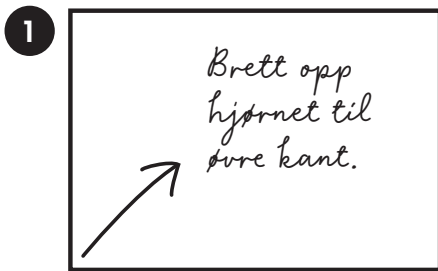 1
Brett opp
hjørnet til
øvre kant.